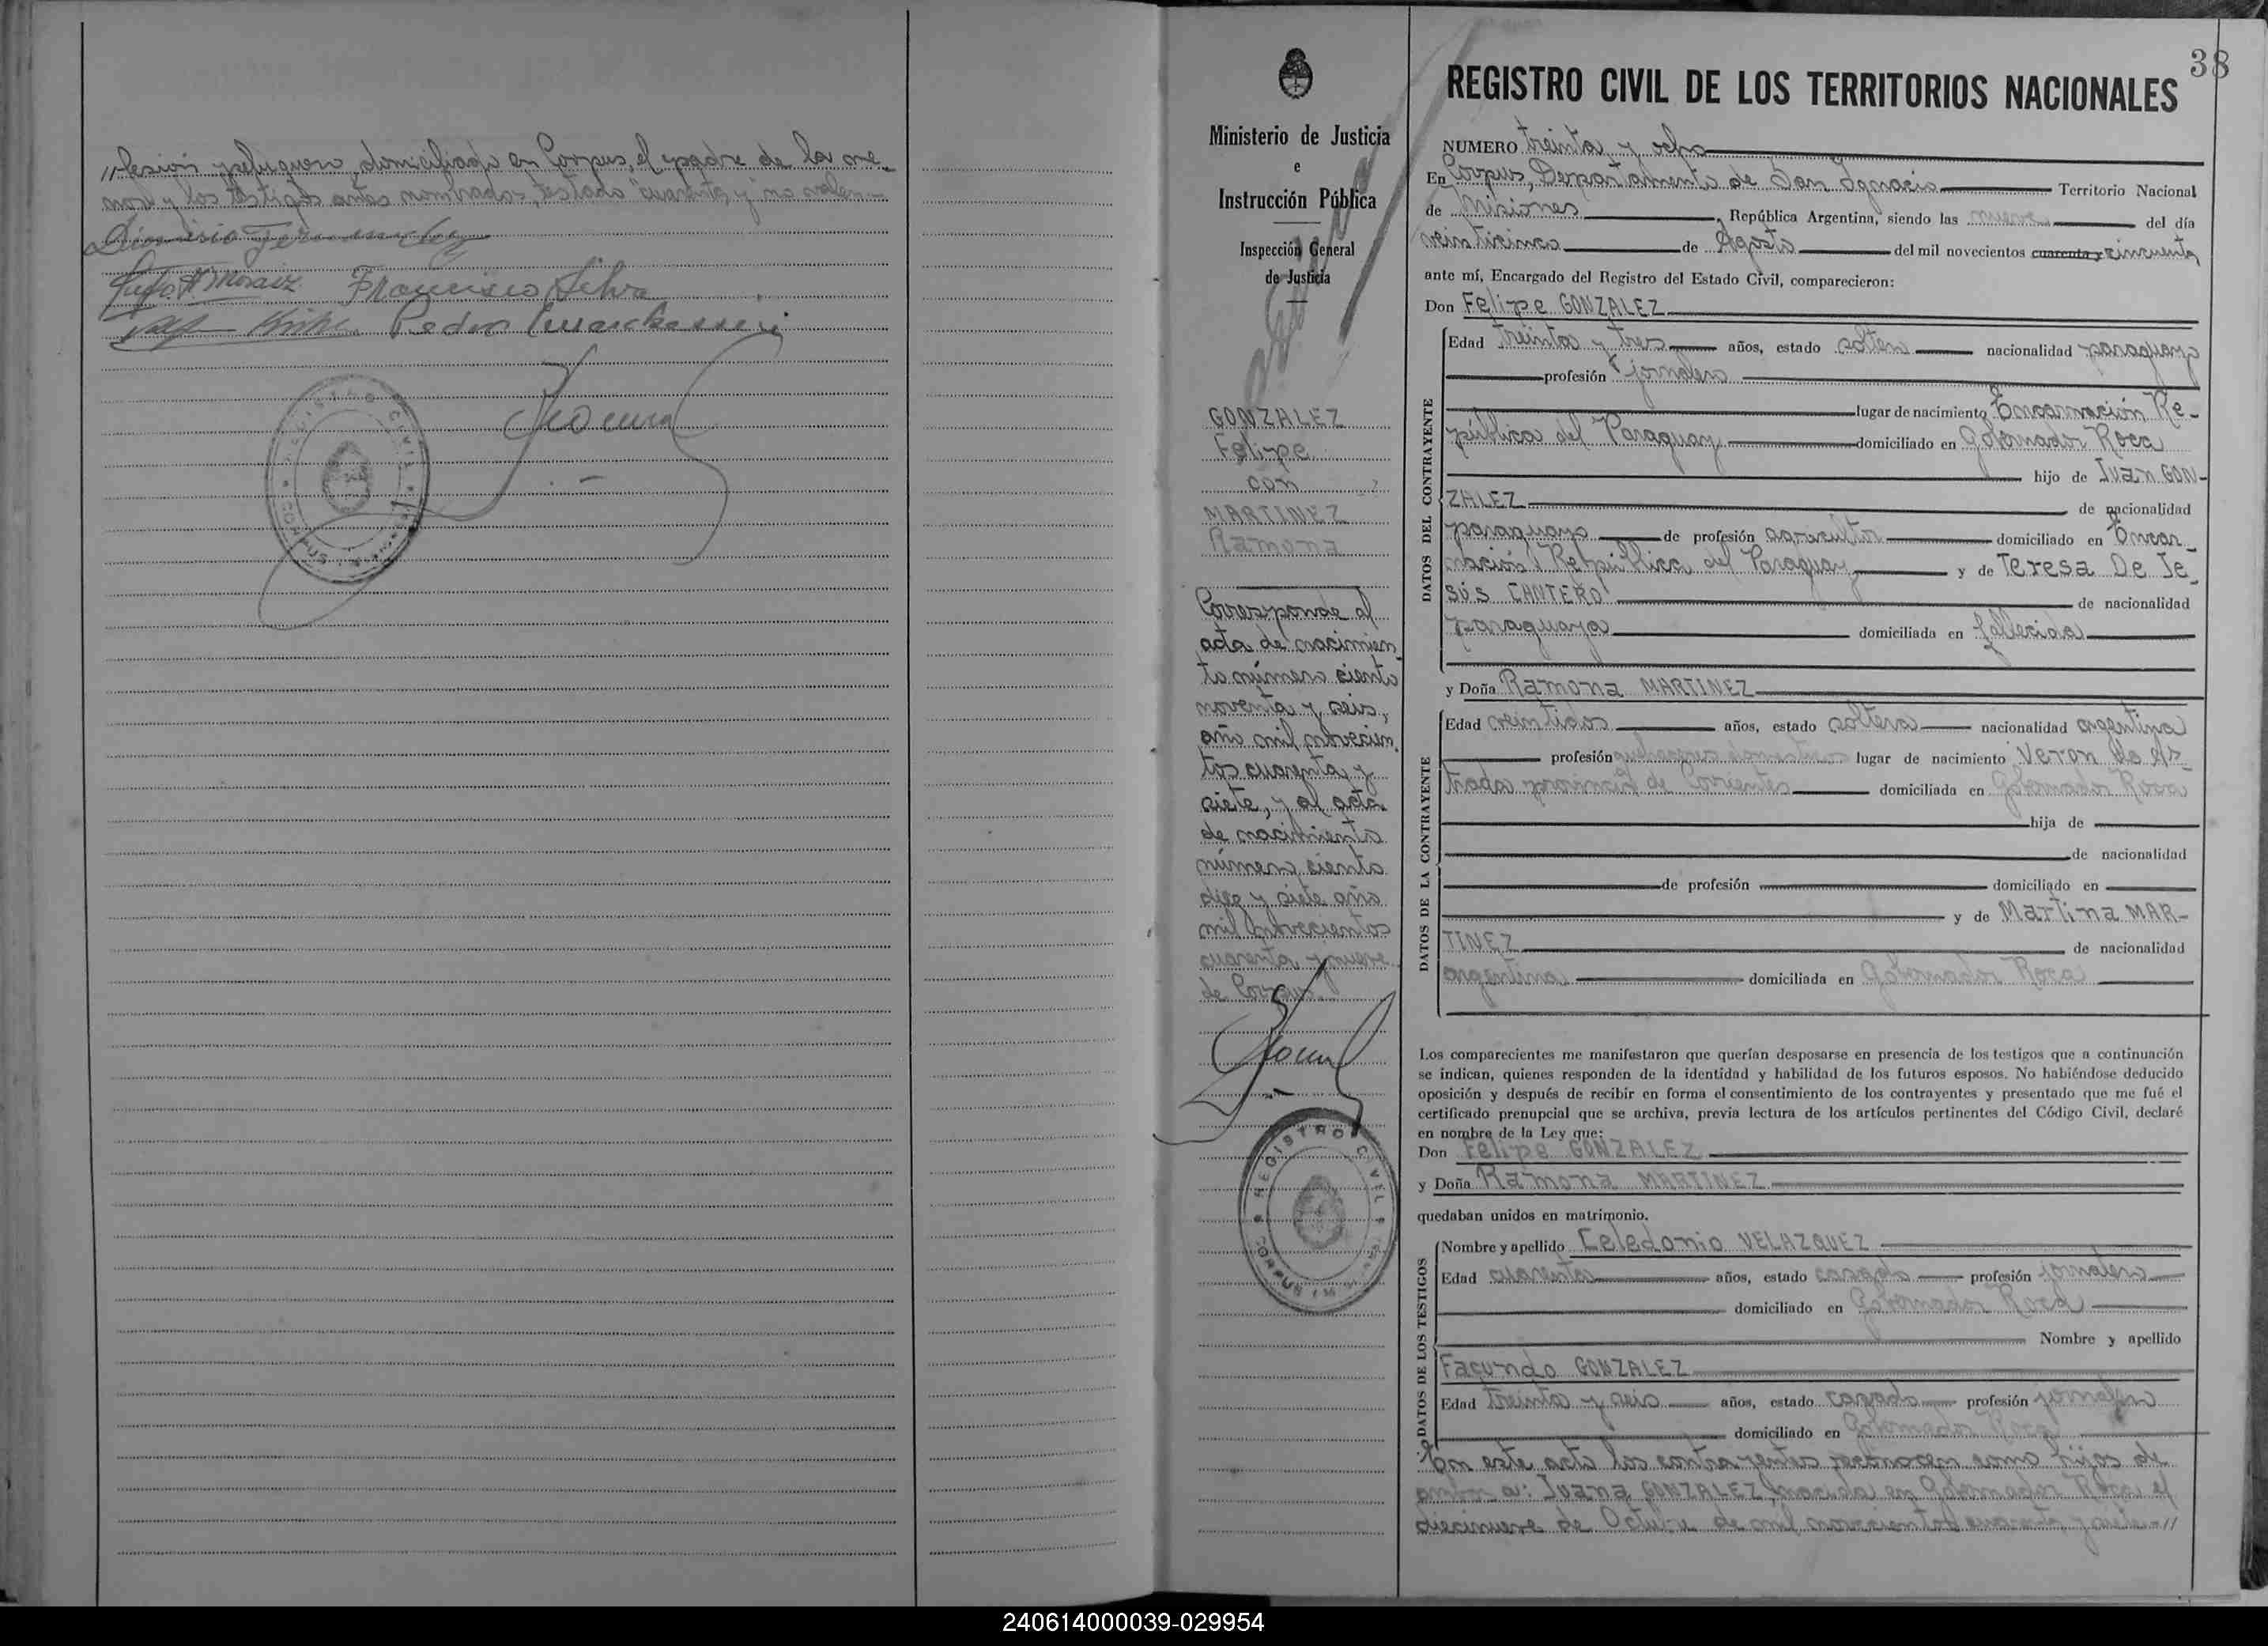 //fesión peluquero, domiciliado en Corpus, el padre de la me-
nor y los testigos antes nombrados, testado "cuarenta y" no valen.-
Francisco Silva
Pedro
REGISTRO CIVIL
CORPUS
38
Ministerio de Justicia
e
Instrucción Pública
Inspección General
de Justicia
GONZALEZ
Felipe
con
MARTINEZ
Ramona
Corresponde al
acta de nacimien-
to número ciento
noventa y seis,
año mil novecien-
tos cuarenta y
siete, y al acta
de nacimiento
número ciento
diez y siete año
mil novecientos
cuarenta y nueve
de Corpus.
REGISTRO CIVIL
CORPUS
REGISTRO CIVIL DE LOS TERRITORIOS NACIONALES
NUMERO treinta y ocho
En Corpus, Departamento de San Ignacio Territorio Nacional
de Misiones, República Argentina, siendo las nueve del día
veinticinco de Agosto del mil novecientos cuarenta y cincuenta
ante mí, Encargado del Registro del Estado Civil, comparecieron:
Don Felipe GONZALEZ
DATOS DEL CONTRAYENTE
Edad treinta y tres años, estado soltero nacionalidad paraguayo
profesión jornalero
lugar de nacimiento Encarnación Re-
pública del Paraguay domiciliado en Gobernador Roca
hijo de Juan GON-
ZALEZ de nacionalidad
paraguayo de profesión agricultor domiciliado en Encar-
nación República del Paraguay y de Teresa De Je-
sús CANTERO de nacionalidad
paraguaya domiciliada en fallecida
y Doña Ramona MARTINEZ
DATOS DE LA CONTRAYENTE
Edad veintidos años, estado soltera nacionalidad argentina
profesión quehaceres domésticos lugar de nacimiento Veron de es-
trada provincia de Corrientes domiciliada en Gobernador Roca
hija de
de nacionalidad
de profesión domiciliado en
y de Martina MAR-
TINEZ de nacionalidad
argentina domiciliada en Gobernador Roca
Los comparecientes me manifestaron que querían desposarse en presencia de los testigos que a continuación
se indican, quienes responden de la identidad y habilidad de los futuros esposos. No habiéndose deducido
oposición y después de recibir en forma el consentimiento de los contrayentes y presentado que me fué el
certificado prenupcial que se archiva, previa lectura de los artículos pertinentes del Código Civil, declaré
en nombre de la Ley que:
Don Felipe GONZALEZ
y Doña Ramona MARTINEZ
quedaban unidos en matrimonio.
DATOS DE LOS TESTIGOS
Nombre y apellido Celedonio VELAZQUEZ
Edad cuarenta años, estado casado profesión jornalero
domiciliado en Gobernador Roca
Nombre y apellido
Facundo GONZALEZ
Edad treinta y seis años, estado casado profesión jornalero
domiciliado en Gobernador Roca
En este acto los contrayentes reconocen como hijos de
ambos a: Juana GONZALEZ, nacida en Gobernador Roca el
diecinueve de Octubre de mil novecientos cuarenta y siete.-//
240614000039-029954